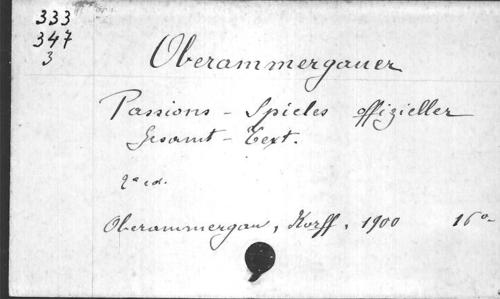 333
347
3
Oberammergauer
Passions - Spieles offizieller
Gesamt - Text.
2ª ed.
Oberammergau, Korff, 1900 16º